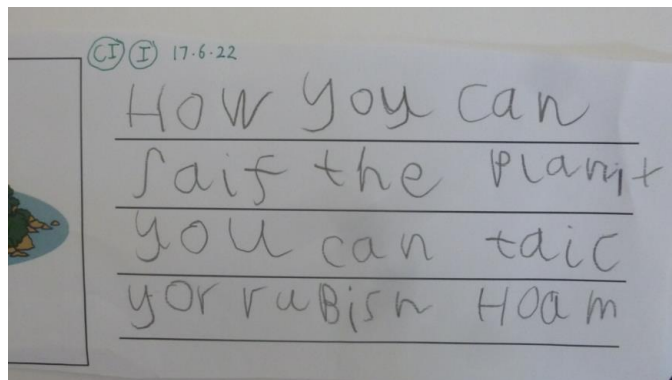 CI I 17.6.22
How you can
saif the planit
you can taic
yor ruBish Hoam